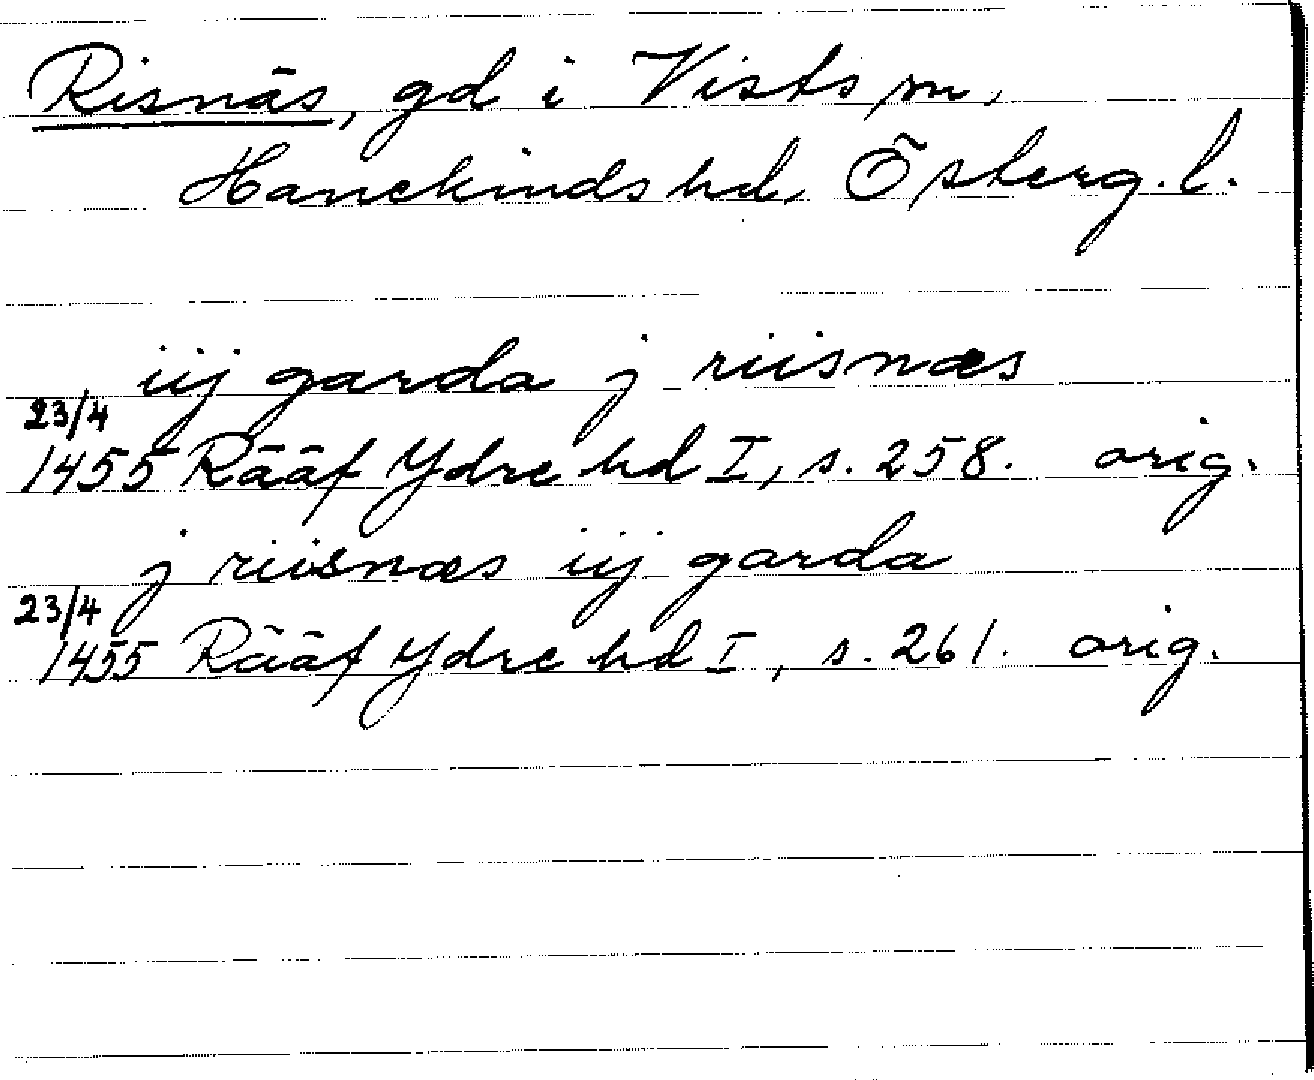 Risnäs, gd i Vists sn,
Hanekinds hd, Österg. l.
iij garda j riisnæs
23/4
1455 Rääf Ydre hd I, s. 258. orig.
j riisnæs iij garda
23/4
1455 Rääf Ydre hd I, s. 261. orig.